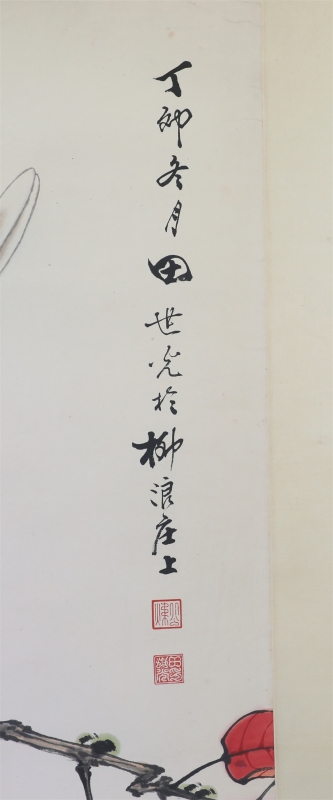 丁卯冬月田世光於柳浪庄上